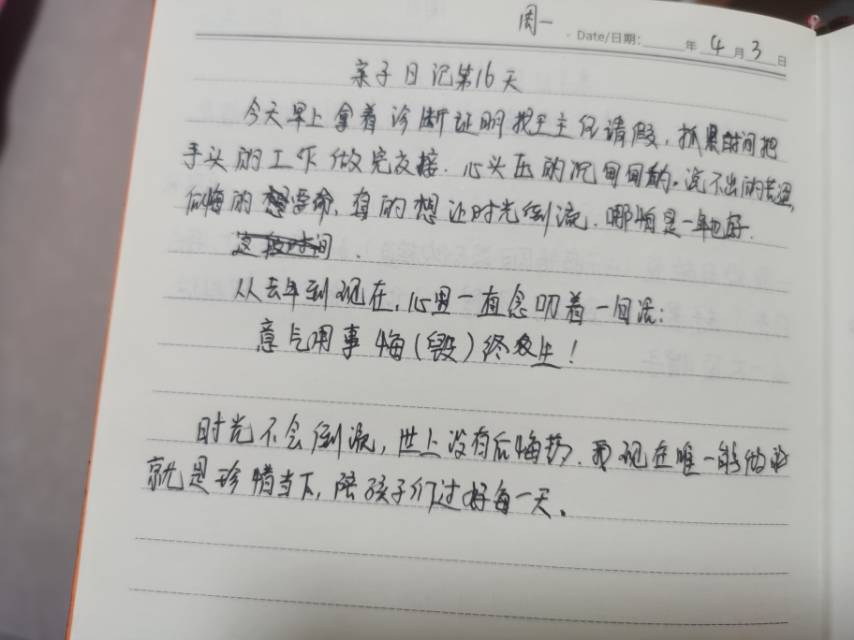 周一
Date/日期: 年 4 月 3 日
亲子日记第16天
今天早上拿着诊断证明找王主任请假,抓紧时间把
手头的工作做完交接.心头压的沉甸甸的。说不出的苦涩,
后悔的想要命,真的想让时光倒流.哪怕是一年也好.
这段时间.
从去年到现在,心里一直念叨着一句话:
意气用事 悔(毁)终生!
时光不会倒流,世上没有后悔药.我现在唯一能做的
就是珍惜当下,陪孩子们过好每一天。